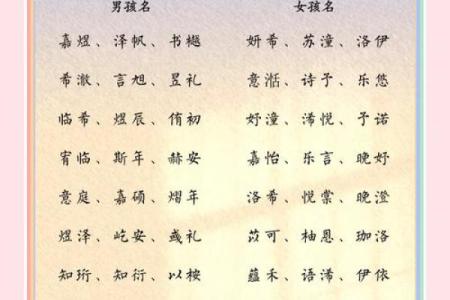 男孩名 女孩名
嘉煜、泽帆、书樾 妍希、苏潼、洛伊
希澈、言旭、昱礼 意湉、诗予、乐悠
临希、煜辰、侑初 妤潼、浠悦、予诺
宥临、斯年、赫安 嘉怡、乐言、晚妤
意庭、嘉硕、熠年 洛希、悦棠、晚澄
煜泽、屹安、彧礼 苡可、柚恩、珈洛
知珩、知衍、以桉 蕴禾、语浠、伊依